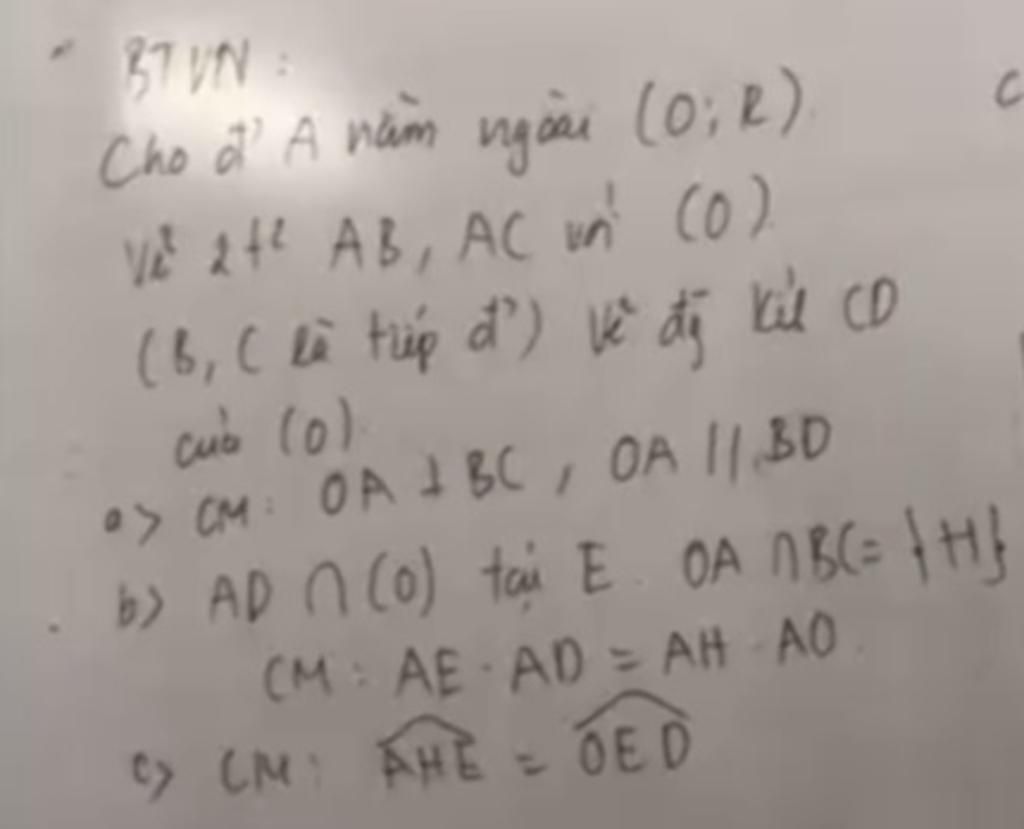 BTVN:
Cho đ' A nằm ngoài (O; R)
Vẽ 2 t² AB, AC với (O)
(B, C là tiếp đ') Vẽ đg kík CD
của (O)
a> CM: OA ⊥ BC, OA // BD
b> AD ∩ (O) tại E. OA ∩ BC = {H}
CM: AE . AD = AH . AO
c> CM: \widehat{AHE} = \widehat{OED}